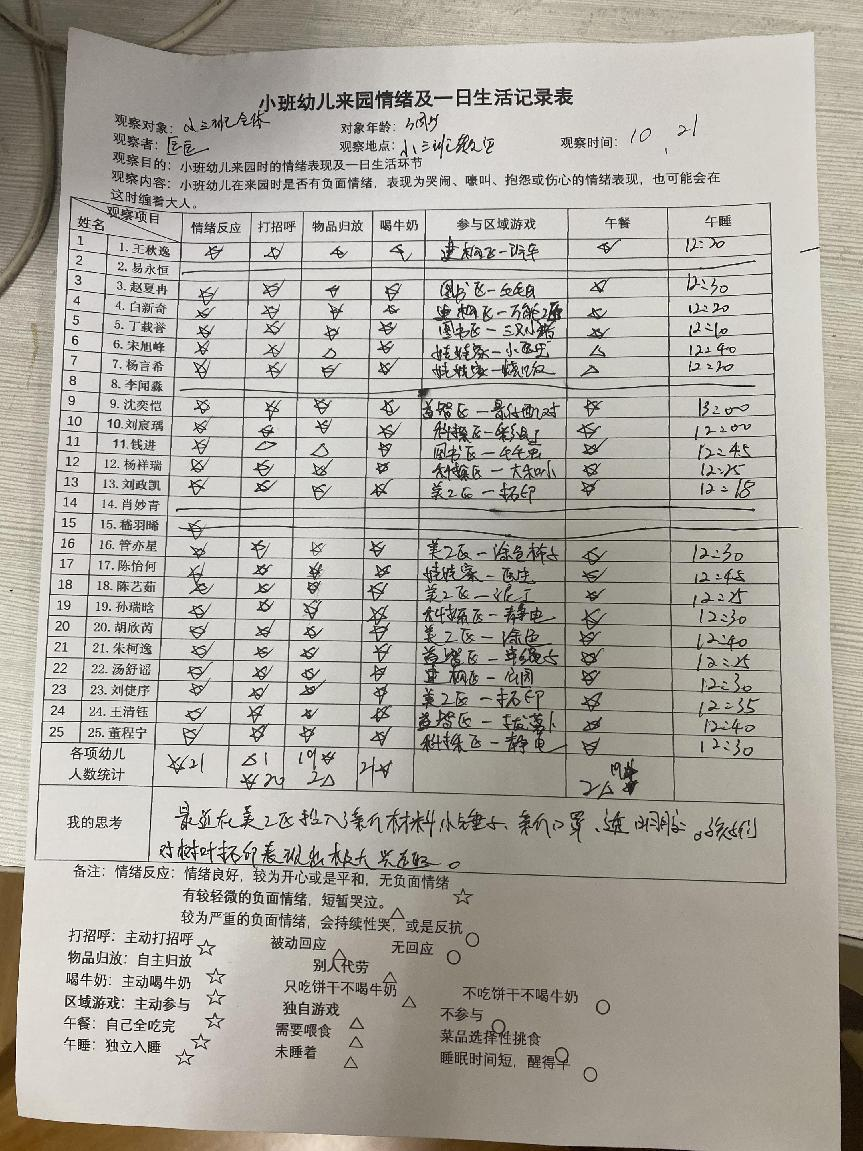 小班幼儿来园情绪及一日生活记录表
观察对象：小三班全体 对象年龄：
观察者： 观察地点：小三班教室 观察时间：10.21
观察目的：小班幼儿来园时的情绪表现及一日生活环节
观察内容：小班幼儿在来园时是否有负面情绪，表现为哭闹、嚎叫、抱怨或伤心的情绪表现，也可能会在
这时缠着大人。
观察项目 姓名 情绪反应 打招呼 物品归放 喝牛奶 参与区域游戏 午餐 午睡
1 1.王秋逸 ☆ ☆ ☆ ☆ 建构区— ☆ 12:20
2 2.易永恒
3 3.赵夏冉 ☆ ☆ ☆ ☆ 图书区—毛毛虫 ☆ 12:30
4 4.白新奇 ☆ ☆ ☆ ☆ 建构区—万能工 ☆ 12:20
5 5.丁载誉 ☆ ☆ ☆ ☆ 图书区—三只小猪 ☆ 12:10
6 6.宋旭峰 ☆ ☆ △ ☆ 娃娃家—小医生 △ 12:40
7 7.杨言希 ☆ ☆ ☆ ☆ 娃娃家—烧饭 △ 12:30
8 8.李闻淼
9 9.沈奕恺 ☆ ☆ ☆ ☆ 益智区—颜色配对 ☆ 13:00
10 10.刘宸瑀 ☆ ☆ ☆ ☆ 科探区— ☆ 12:00
11 11.钱进 ☆ △ △ ☆ 图书区—毛毛虫 ☆ 12:45
12 12.杨祥瑞 ☆ ☆ ☆ ☆ 科探区—大和小 ☆ 12:25
13 13.刘政凯 ☆ ☆ ☆ ☆ 美工区—拓印 ☆ 12:18
14 14.肖妙青
15 15.嵇羽晞 ☆
16 16.管亦星 ☆ ☆ ☆ ☆ 美工区—涂色 ☆ 12:30
17 17.陈怡何 ☆ ☆ ☆ ☆ 娃娃家—医生 ☆ 12:45
18 18.陈艺茹 ☆ ☆ ☆ ☆ 美工区—泥工 ☆ 12:25
19 19.孙瑞晗 ☆ ☆ ☆ ☆ 科探区—静电 ☆ 12:30
20 20.胡欣芮 ☆ ☆ ☆ ☆ 美工区—涂色 ☆ 12:40
21 21.朱柯逸 ☆ ☆ ☆ ☆ 益智区— ☆ 12:25
22 22.汤舒谣 ☆ ☆ ☆ ☆ 建构区—公园 ☆ 12:30
23 23.刘健序 ☆ ☆ ☆ ☆ 美工区—拓印 ☆ 12:35
24 24.王清钰 ☆ ☆ ☆ ☆ 益智区—拔萝卜 ☆ 12:40
25 25.董程宁 ☆ ☆ ☆ ☆ 科探区—静电 ☆ 12:30
各项幼儿 ☆21 △1 19☆ 21☆
人数统计 ☆20 2△ 2△
我的思考 最近在美工区投入了新的材料小锤子、新的口罩、透明胶。孩子们
对树叶拓印表现出极大兴趣。
备注：情绪反应：情绪良好，较为开心或是平和，无负面情绪 ☆
有较轻微的负面情绪，短暂哭泣。 △
较为严重的负面情绪，会持续性哭，或是反抗 ○
打招呼：主动打招呼 ☆ 被动回应 △ 无回应 ○
物品归放：自主归放 ☆ 别人代劳 △
喝牛奶：主动喝牛奶 ☆ 只吃饼干不喝牛奶 △ 不吃饼干不喝牛奶 ○
区域游戏：主动参与 ☆ 独自游戏 △ 不参与 ○
午餐：自己全吃完 ☆ 需要喂食 △ 菜品选择性挑食 ○
午睡：独立入睡 ☆ 未睡着 △ 睡眠时间短，醒得早 ○